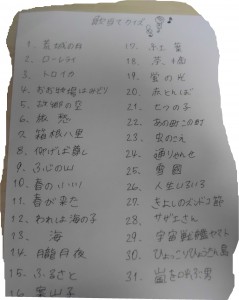 歌当てクイズ
1. 荒城の月
2. ローレライ
3. トロイカ
4. おお牧場はみどり
5. 故郷の空
6. 旅愁
7. 箱根八里
8. 仰げば尊し
9. ふじの山
10. 春の小川
11. 春が来た
12. われは海の子
13. 海
14. 朧月夜
15. ふるさと
16. 案山子
17. 冬景
18. 早春
19. 蛍の光
20. 赤とんぼ
21. 七つの子
22. あの町この町
23. 虫のこえ
24. 通りゃんせ
25. 雪國
26. 人生いろいろ
27. きよしのズンドコ節
28. サザエさん
29. 宇宙戦艦ヤマト
30. ひょっこりひょうたん島
31. 嵐を呼ぶ男